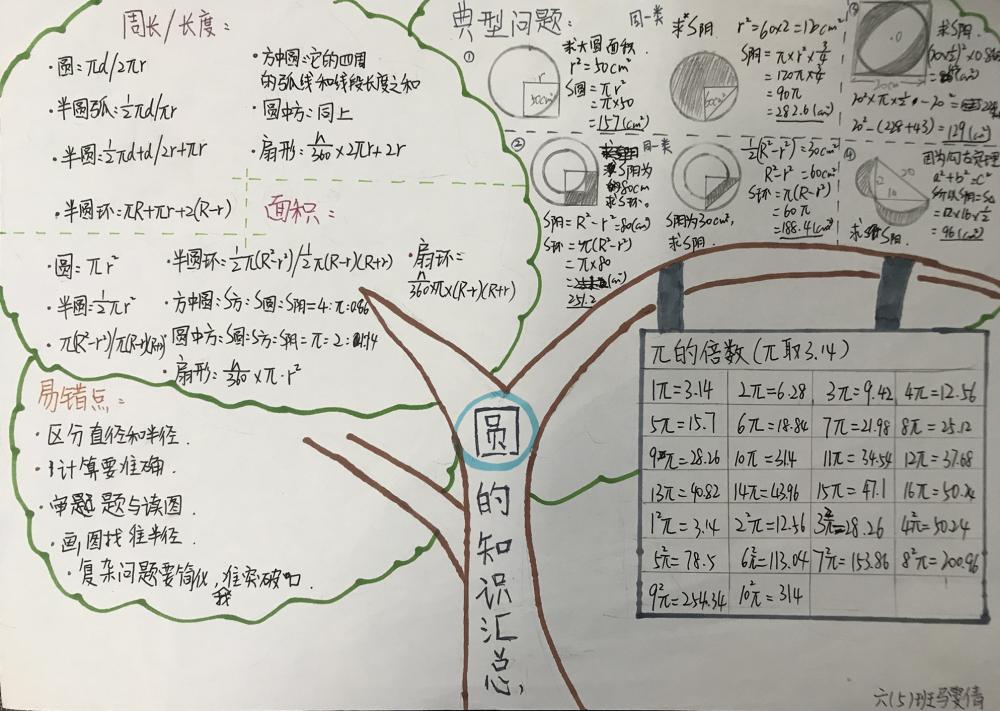 周长/长度:
·圆:πd/2πr
·半圆弧:½πd/πr
·半圆:½πd+d/2r+πr
·半圆环=πR+πr+2(R-r)
·方中圆:它的四周
的弧线和线段长度之和
·圆中方:同上
·扇形:n/360×2πr+2r
面积:
·圆=πr²
·半圆½πr²
·π(R²-r²)/π(R-r)(R+r)
·半圆环:½π(R²-r²)/½π(R-r)(R+r)
·方中圆:S方:S圆:S阴=4:π:0.86
·圆中方:S圆:S方:S阴=π:2:1.14
·扇形:n/360×π·r²
·扇环=
n/360×π×(R-r)(R+r)
易错点:
·区分直径和半径.
·计算要准确.
·审题题与读图
·画图找准半径.
·复杂问题要简化,找准突破口.
典型问题:
同一类
①
r
50cm²
求大圆面积.
r²=50cm²
S圆=πr²
=π×50
=157(cm²)
求S阴
60cm²
r²=60×2=120cm²
S阴=π×r²×¾
=120π×¾
=90π
=282.6(cm²)
③
求S阴
20²-(228+43)=129(cm²)
②
同一类
S阴为
80cm
求S环.
S阴=R²-r²=80(cm²)
S环=π(R²-r²)
=π×80
251.2
S阴为30cm²,
求S阴.
½(R²-r²)=30cm²
R²-r²=60cm²
S环=π(R²-r²)
=60π
=188.4(cm²)
④
12
20
16
求S阴.
因为勾古定理
a²+b²=c²
所以S阴=S△
=12×16×½
=96(cm²)
π的倍数(π取3.14)
1π=3.14 2π=6.28 3π=9.42 4π=12.56
5π=15.7 6π=18.84 7π=21.98 8π=25.12
9π=28.26 10π=314 11π=34.54 12π=37.68
13π=40.82 14π=43.96 15π=47.1 16π=50.24
1²π=3.14 2²π=12.56 3²π=28.26 4²π=50.24
5²π=78.5 6²π=113.04 7²π=153.86 8²π=200.96
9²π=254.34 10²π=314
圆
的
知
识
汇
总,
六(5)班